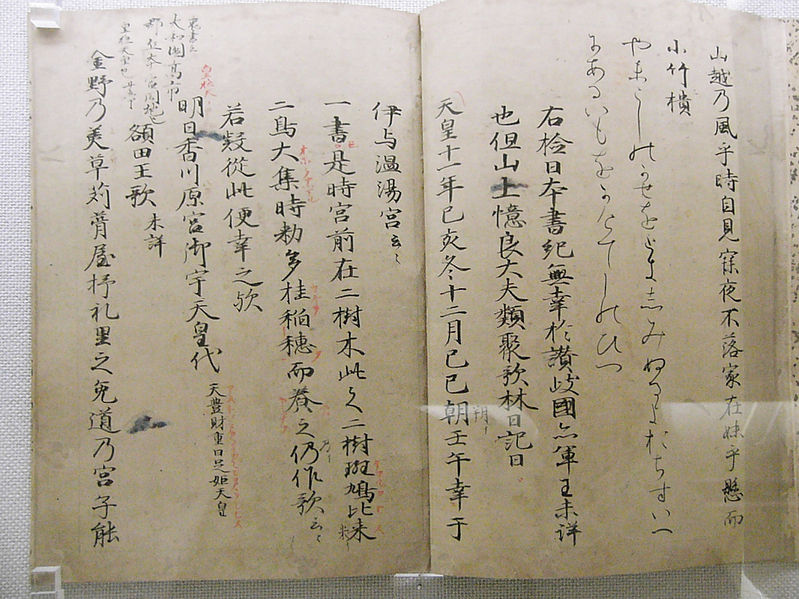 山越乃風乎時自見寐夜不落家在妹乎懸而
小竹樻
やまこしのかせをときしみぬるよおちすいへ
にあるいもをかけてしのひつ
右檢日本書紀無幸於讃岐國亦軍王未詳
也但山上憶良大夫類聚歌林曰記曰
天皇十一年己亥冬十二月己巳朝壬午幸于
伊与温湯宮云〻
一書是時宮前在二樹木此之二樹斑鳩比米
二鳥大集時勅多桂稲穂而養之仍作歌云〻
若疑從此便幸之歟
明日香川原宮御宇天皇代 天豊財重日足姫天皇
額田王歌 未詳
大和國高市
金野乃美草苅葺屋杼礼里之兎道乃宮子能